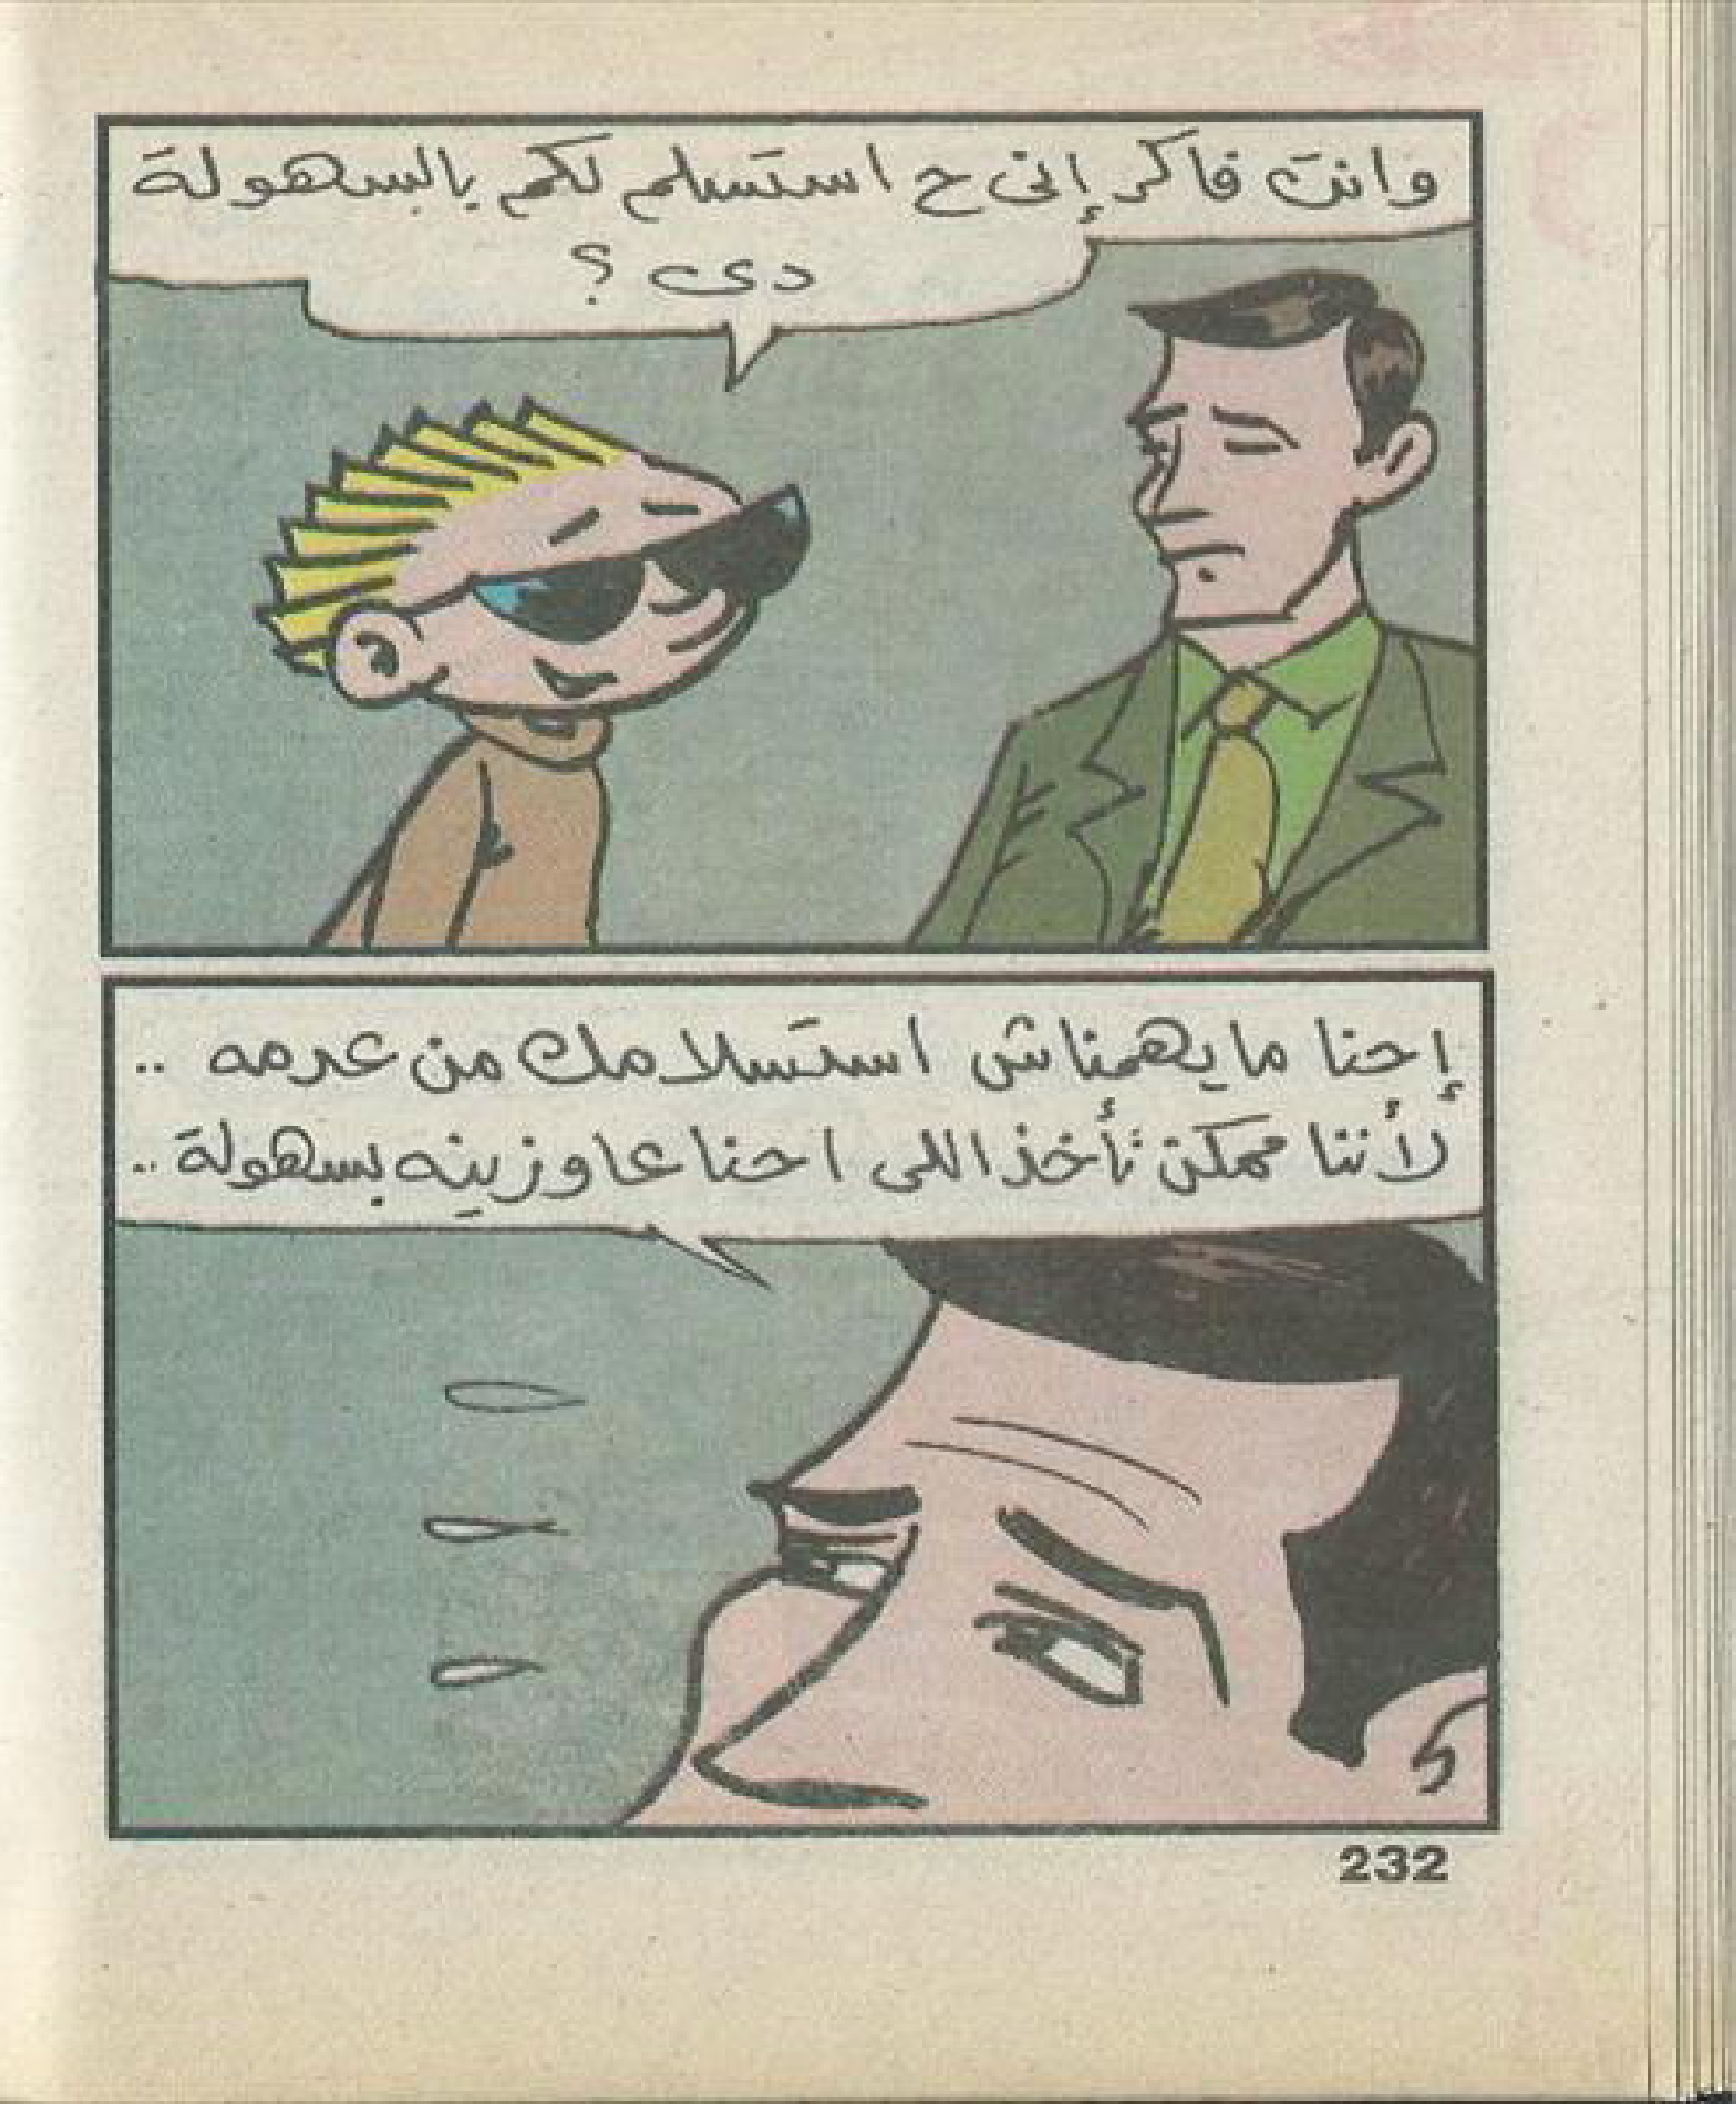 وانت فاكر إنى ح استسلم لكم بالسهولة
دى ؟
إحنا ما يهمناش استسلامك من عدمه ..
لأننا ممكن نأخذ اللى احنا عاوزينه بسهولة ..
232